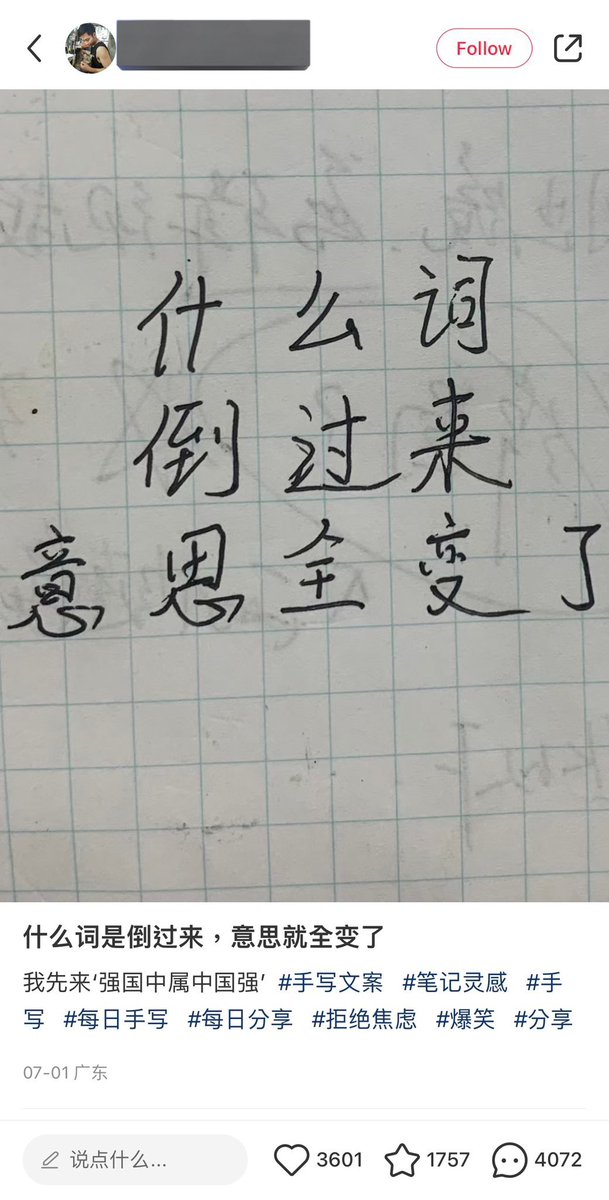 Follow
什么词
倒过来
意思全变了
什么词是倒过来，意思就全变了
我先来‘强国中属中国强’ #手写文案 #笔记灵感 #手
写 #每日手写 #每日分享 #拒绝焦虑 #爆笑 #分享
07-01 广东
说点什么... 3601 1757 4072